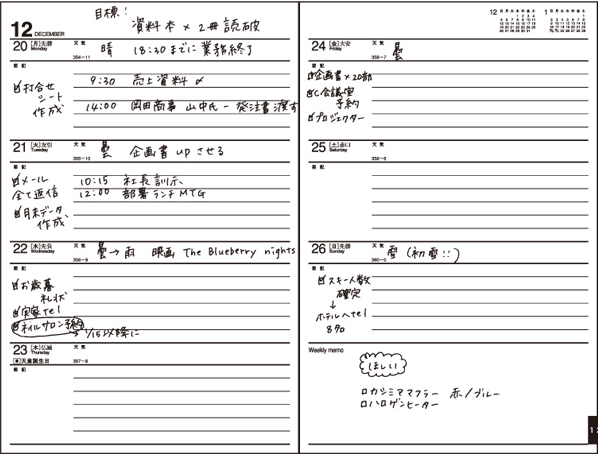 目標!
資料本 × 2冊読破
12 DECEMBER
20 [月]先勝 Monday
天気
354-11
晴 18:30までに業務終了
要記
打合せ
シート
作成
9:30 売上資料〆
14:00 岡田商事 山中氏－発注書渡す
21 [火]友引 Tuesday
天気
355-10
曇 企画書upさせる
要記
メール
全て返信
月末データ
作成
10:15 社長訓示
12:00 部署ランチMTG
22 [水]先負 Wednesday
天気
356-9
曇→雨 映画 The Blueberry nights
要記
お歳暮
礼状
実家tel
ネイルサロン予約
→1/15以降に
23 [木]仏滅 Thursday
天気
天皇誕生日
357-8
要記
12
1
24 [金]大安 Friday
天気
358-7
曇
要記
企画書×20部
C会議室
予約
プロジェクター
25 [土]赤口 Saturday
天気
359-6
要記
26 [日]先勝 Sunday
天気
360-5
雪(初雪!!)
要記
スキー人数
確定
↓
ホテルへtel
Weekly memo
ほしい
カシミアマフラー 赤/ブルー
ハロゲンヒーター